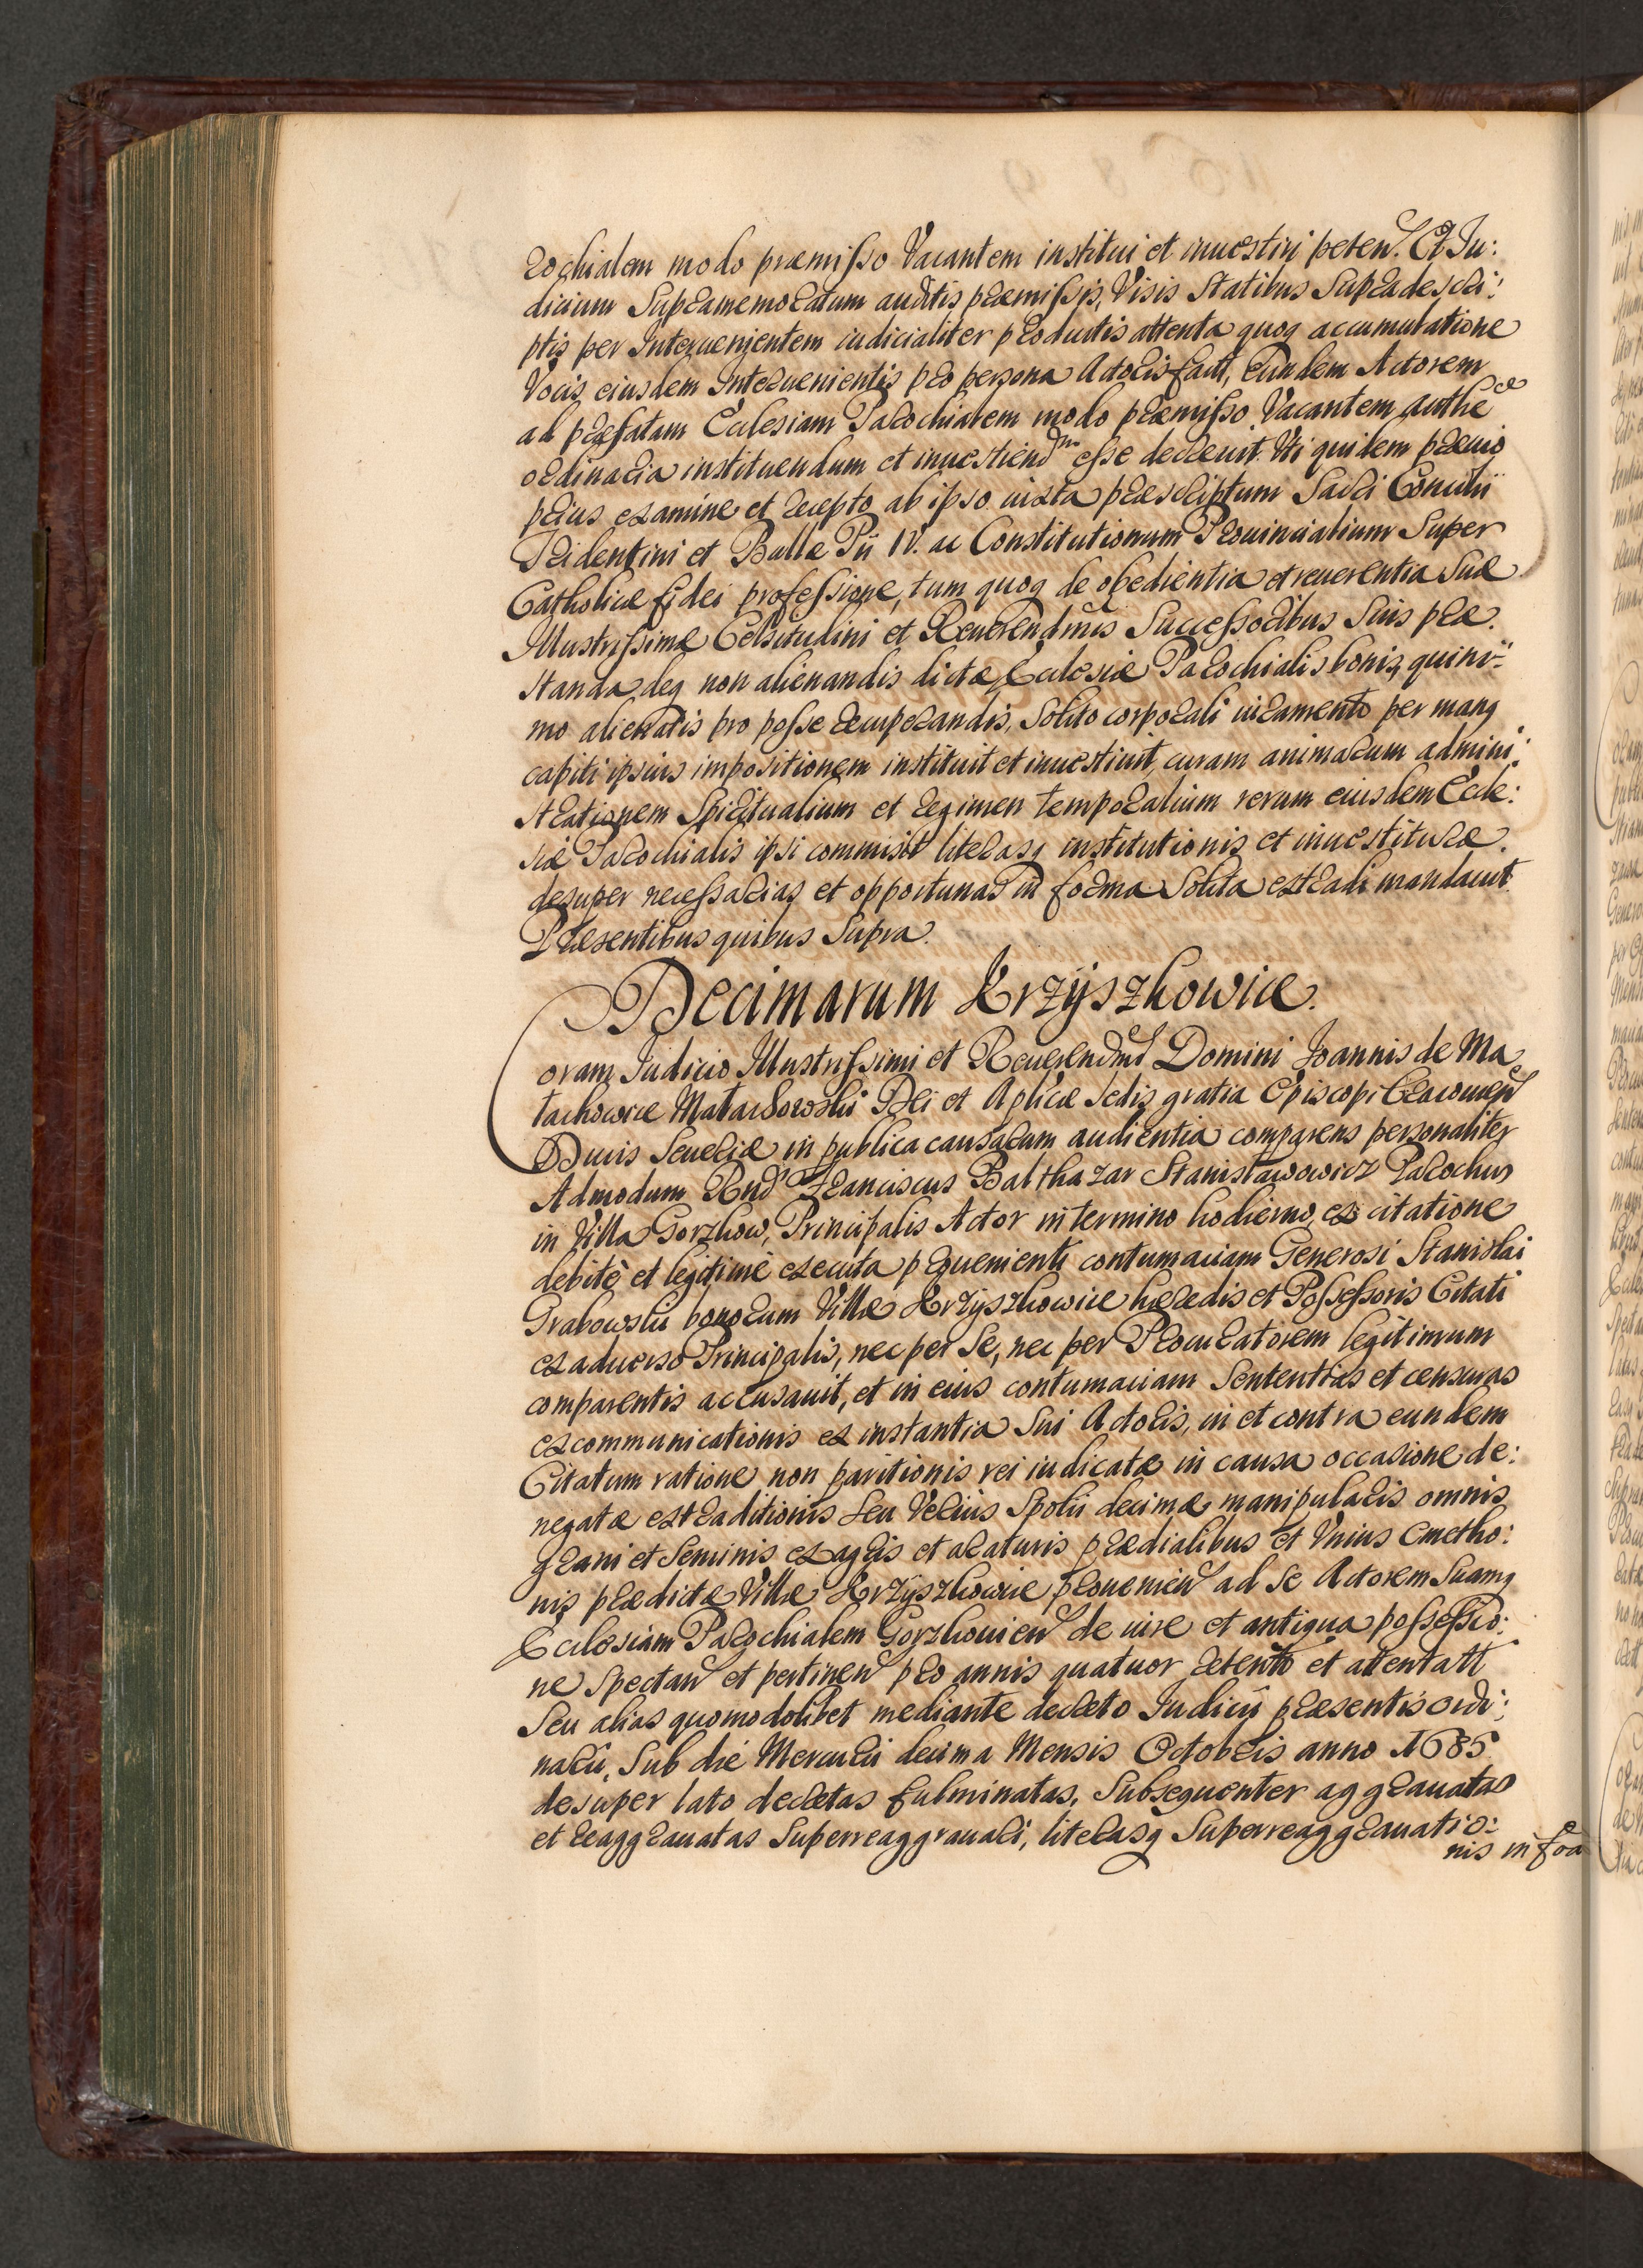 rochialem modo præmisso Vacantem institui et inuestiri peten. Et Ju:
dicium Supramemoratum auditis præmissis, Visis Statibus Supradescri:
ptis per Interuenientem iudicialiter productis attenta quoq accumulatione
Vocis eiusdem Interuenientis pro persona Actoris fact, Eundem Actorem
ad præfatam Ecclesiam Parochialem modo præmisso Vacantem authte
ordinaria instituendum et inuestiend esse decreuit. Uti quidem præuio
prius examine et recepto ab ipso iuxta præscriptum Sacri Concilii
Tridentini et Bullæ Pii IV. ac Constitutionum Prouincialium Super
Catholicæ fidei professione, tum quoq de obedientia et reuerentia Suæ
Illustrissimæ Celsitudini et Reuerendmis Successoribus Suis præ.
standa, deq non alienandis dictæ Ecclesiæ Parochialis bonis, quini:
mo alienatis pro posse recuperandis, Solito corporali iuramento per manq
capiti ipsius impositionem instituit et inuestiuit, curam animarum admini:
strationem Spiritualium et regimen temporalium rerum eiusdem Eccle:
siæ Parochialis ipsi commisit literasq institutionis et inuestituræ.
desuper necessarias et opportunas in forma Solita extradi mandauit.
Præsentibus quibus Supra.
Decimarum Krzyszkowice.
Coram Judicio Illustrissimi et Reuerendmi Domini Joannis de Ma
łachowice Małachowski Dei et Aplicæ Sedis gratia Episcopi Cracouien
Ducis Seueriæ in publica causarum audientia comparens personaliter
Admodum Rnd Franciscus Balthazar Stanisławowicz Parochus
in Villa Gorzkow, Principalis Actor in termino hodierno, ex citatione
debitè et legitimè executa proueniente contumaciam Generosi Stanislai
Grabowski bonorum Villæ Krzyszkowice hæredis et Possessoris Citati
ex aduerso Principalis, nec per Se, nec per Procuratorem legitimum
comparentis accusauit, et in eius contumaciam Sententias et censuras
excommunicationis ex instantia Sui Actoris, in et contra eundem
Citatum ratione non paritionis rei iudicatæ in causa occasione de:
negatæ extraditionis Seu Verius Spolii decimæ manipularis omnis
grani et Seminis ex agris et araturis prædialibus et Vnius Cmetho:
nis prædictæ Villæ Krzyszkowice prouenien ad Se Actorem Suamq
Ecclesiam Parochialem Gorzkouien de iure et antiqua possessio:
ne Spectan et pertinen pro annis quatuor retent et attentatt
Seu alias quomodolibet mediante decreto Iudicii præsentis ordi:
narii, Sub die Mercurii decima Mensis Octobris anno 1685
desuper lato decretas fulminatas, Subsequenter aggrauatas
et reaggrauatas Superreaggrauari, literasq Superreaggrauatio:
nis in foa